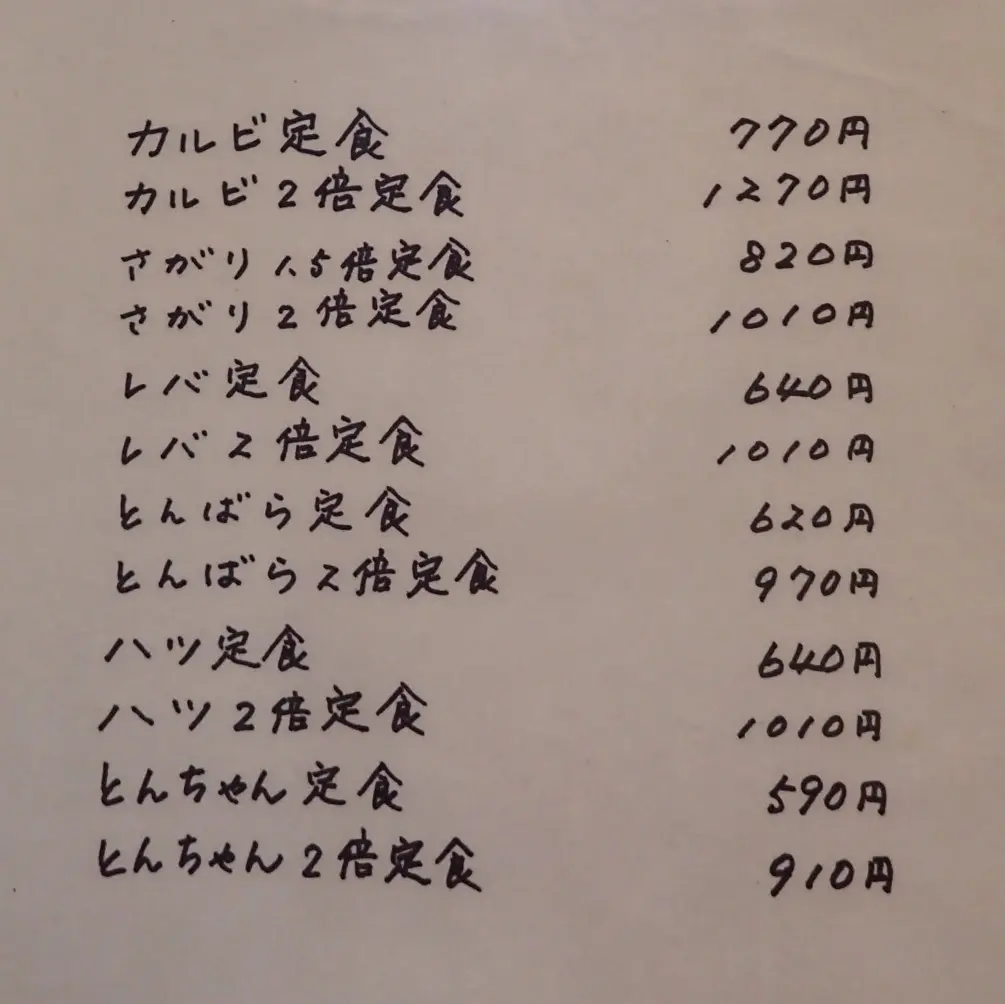 カルビ定食 770円
カルビ2倍定食 1270円
さがり1.5倍定食 820円
さがり2倍定食 1010円
レバ定食 640円
レバ2倍定食 1010円
とんばら定食 620円
とんばら2倍定食 970円
ハツ定食 640円
ハツ2倍定食 1010円
とんちゃん定食 590円
とんちゃん2倍定食 910円